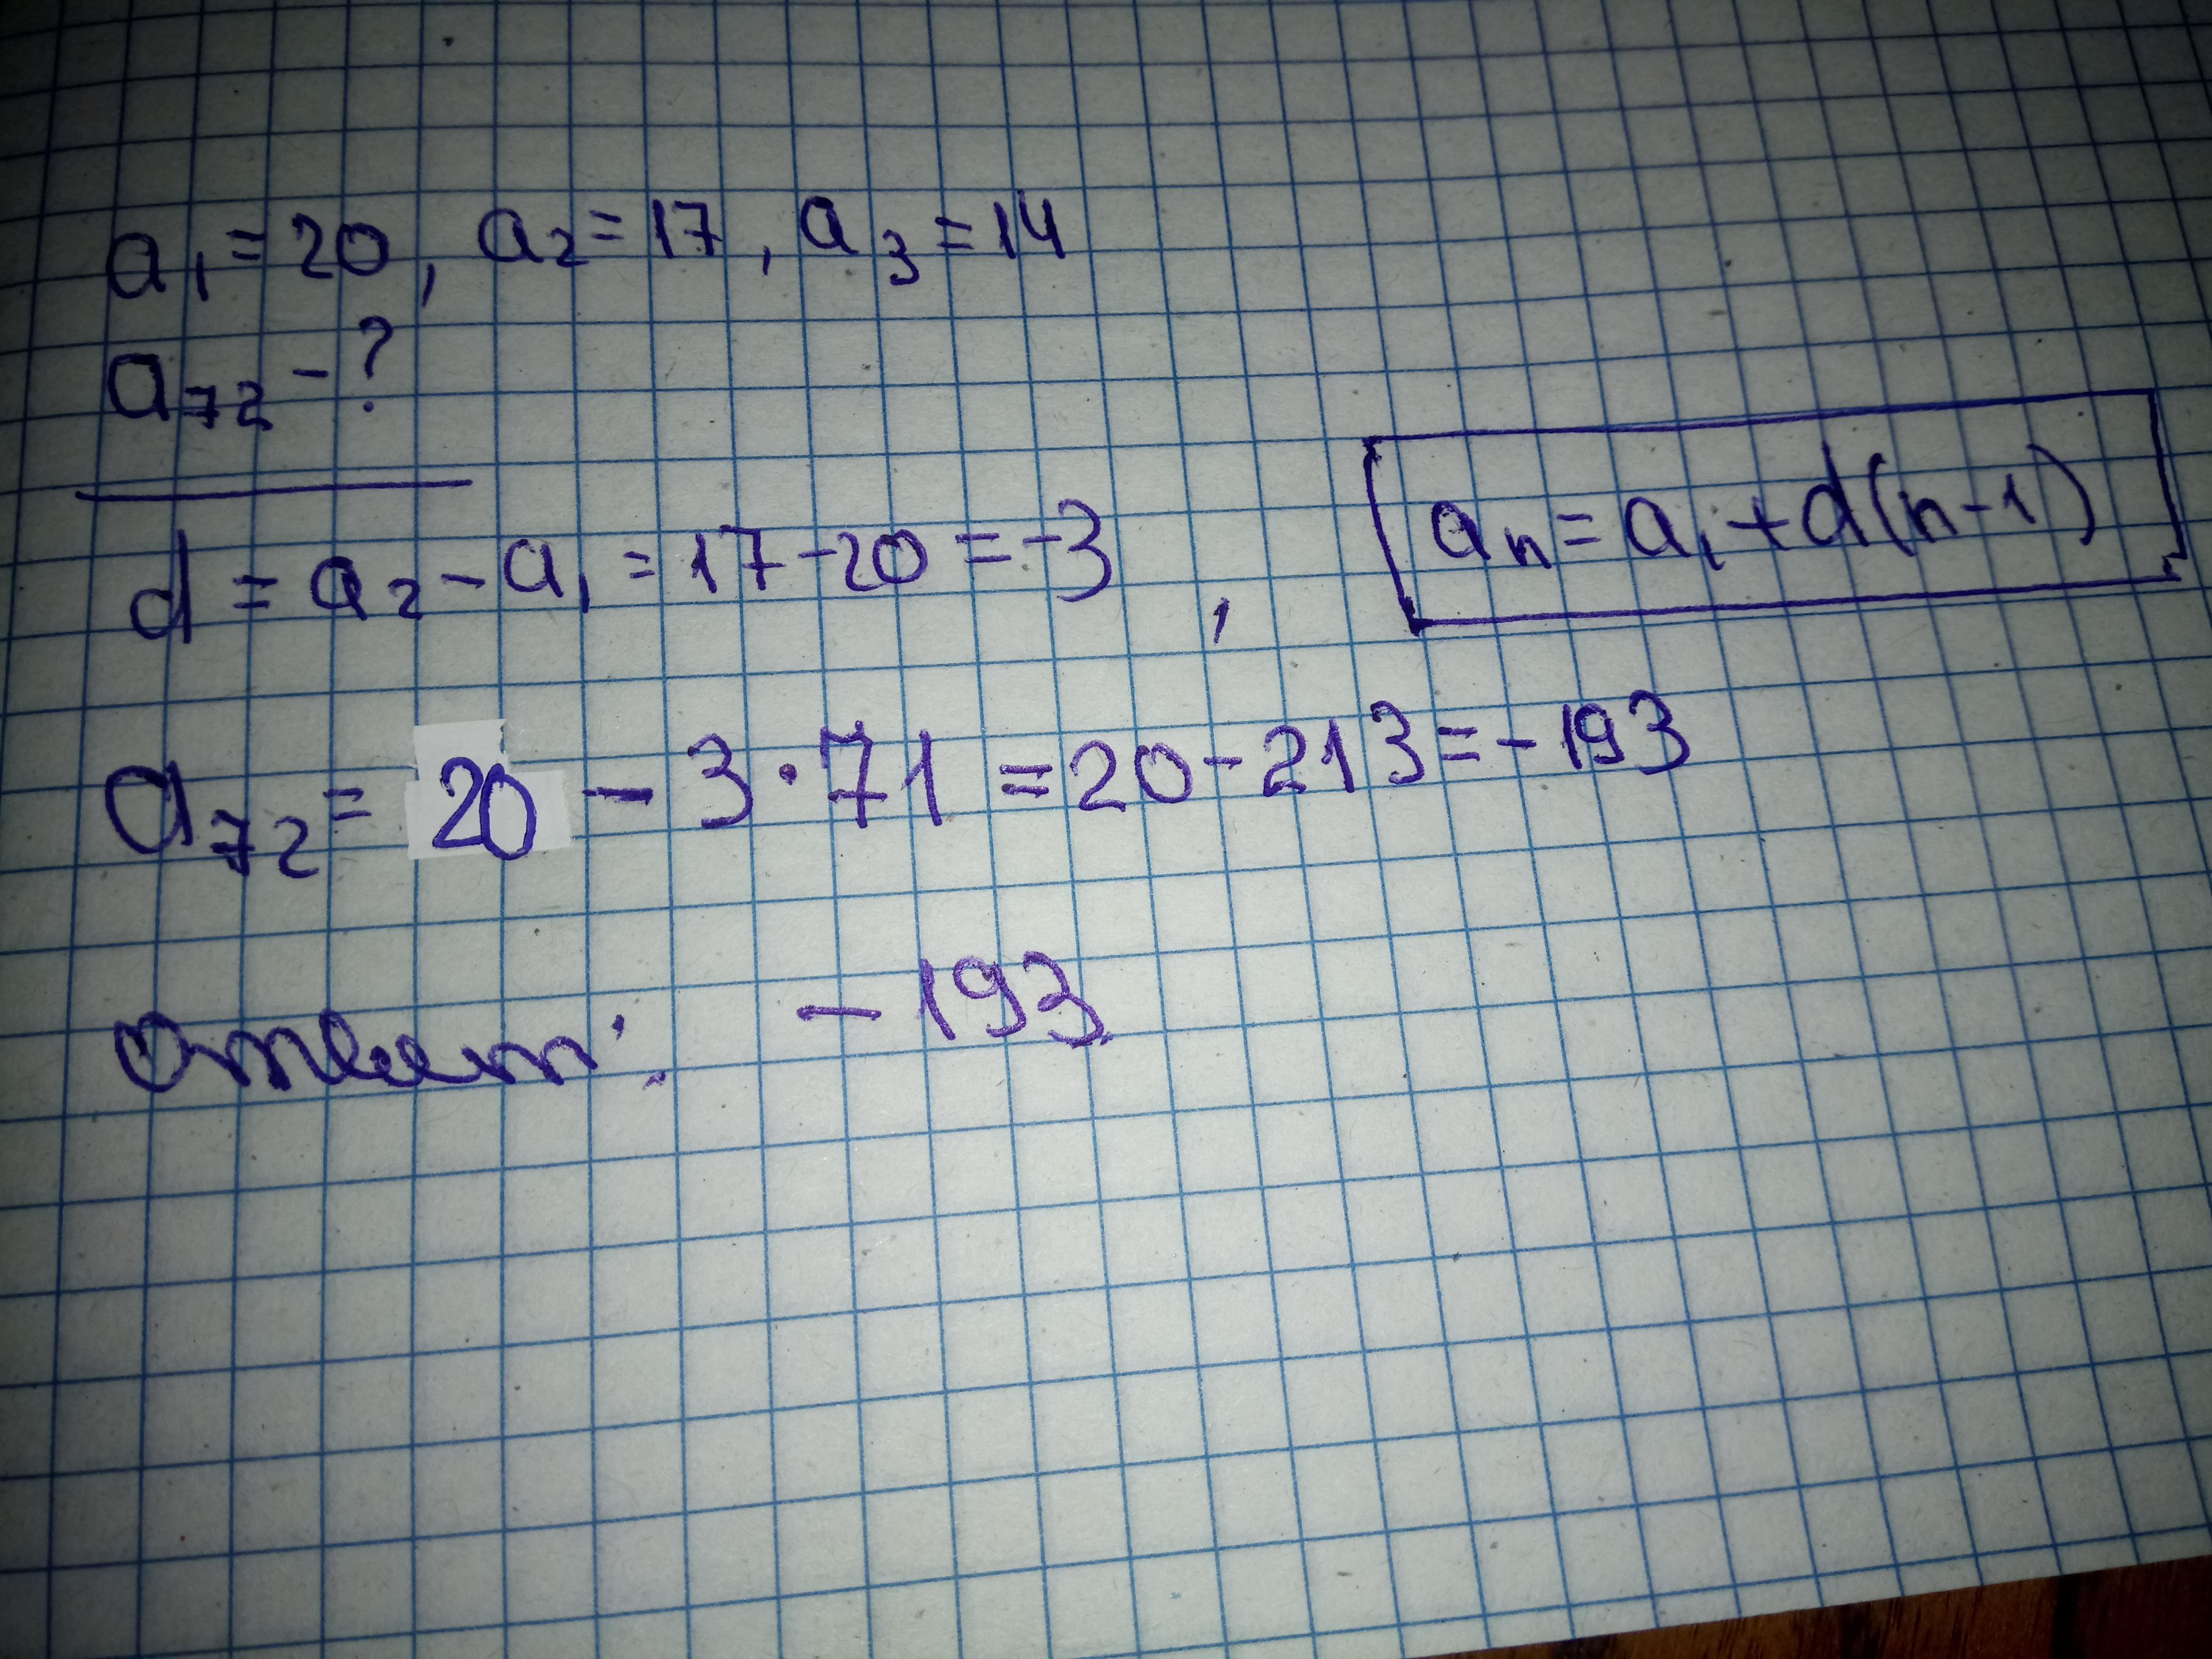 a₁ = 20, a₂ = 17, a₃ = 14
a₇₂ - ?
d = a₂ - a₁ = 17 - 20 = -3, aₙ = a₁ + d(n-1)
a₇₂ = 20 - 3·71 = 20 - 213 = -193
Ответ: -193